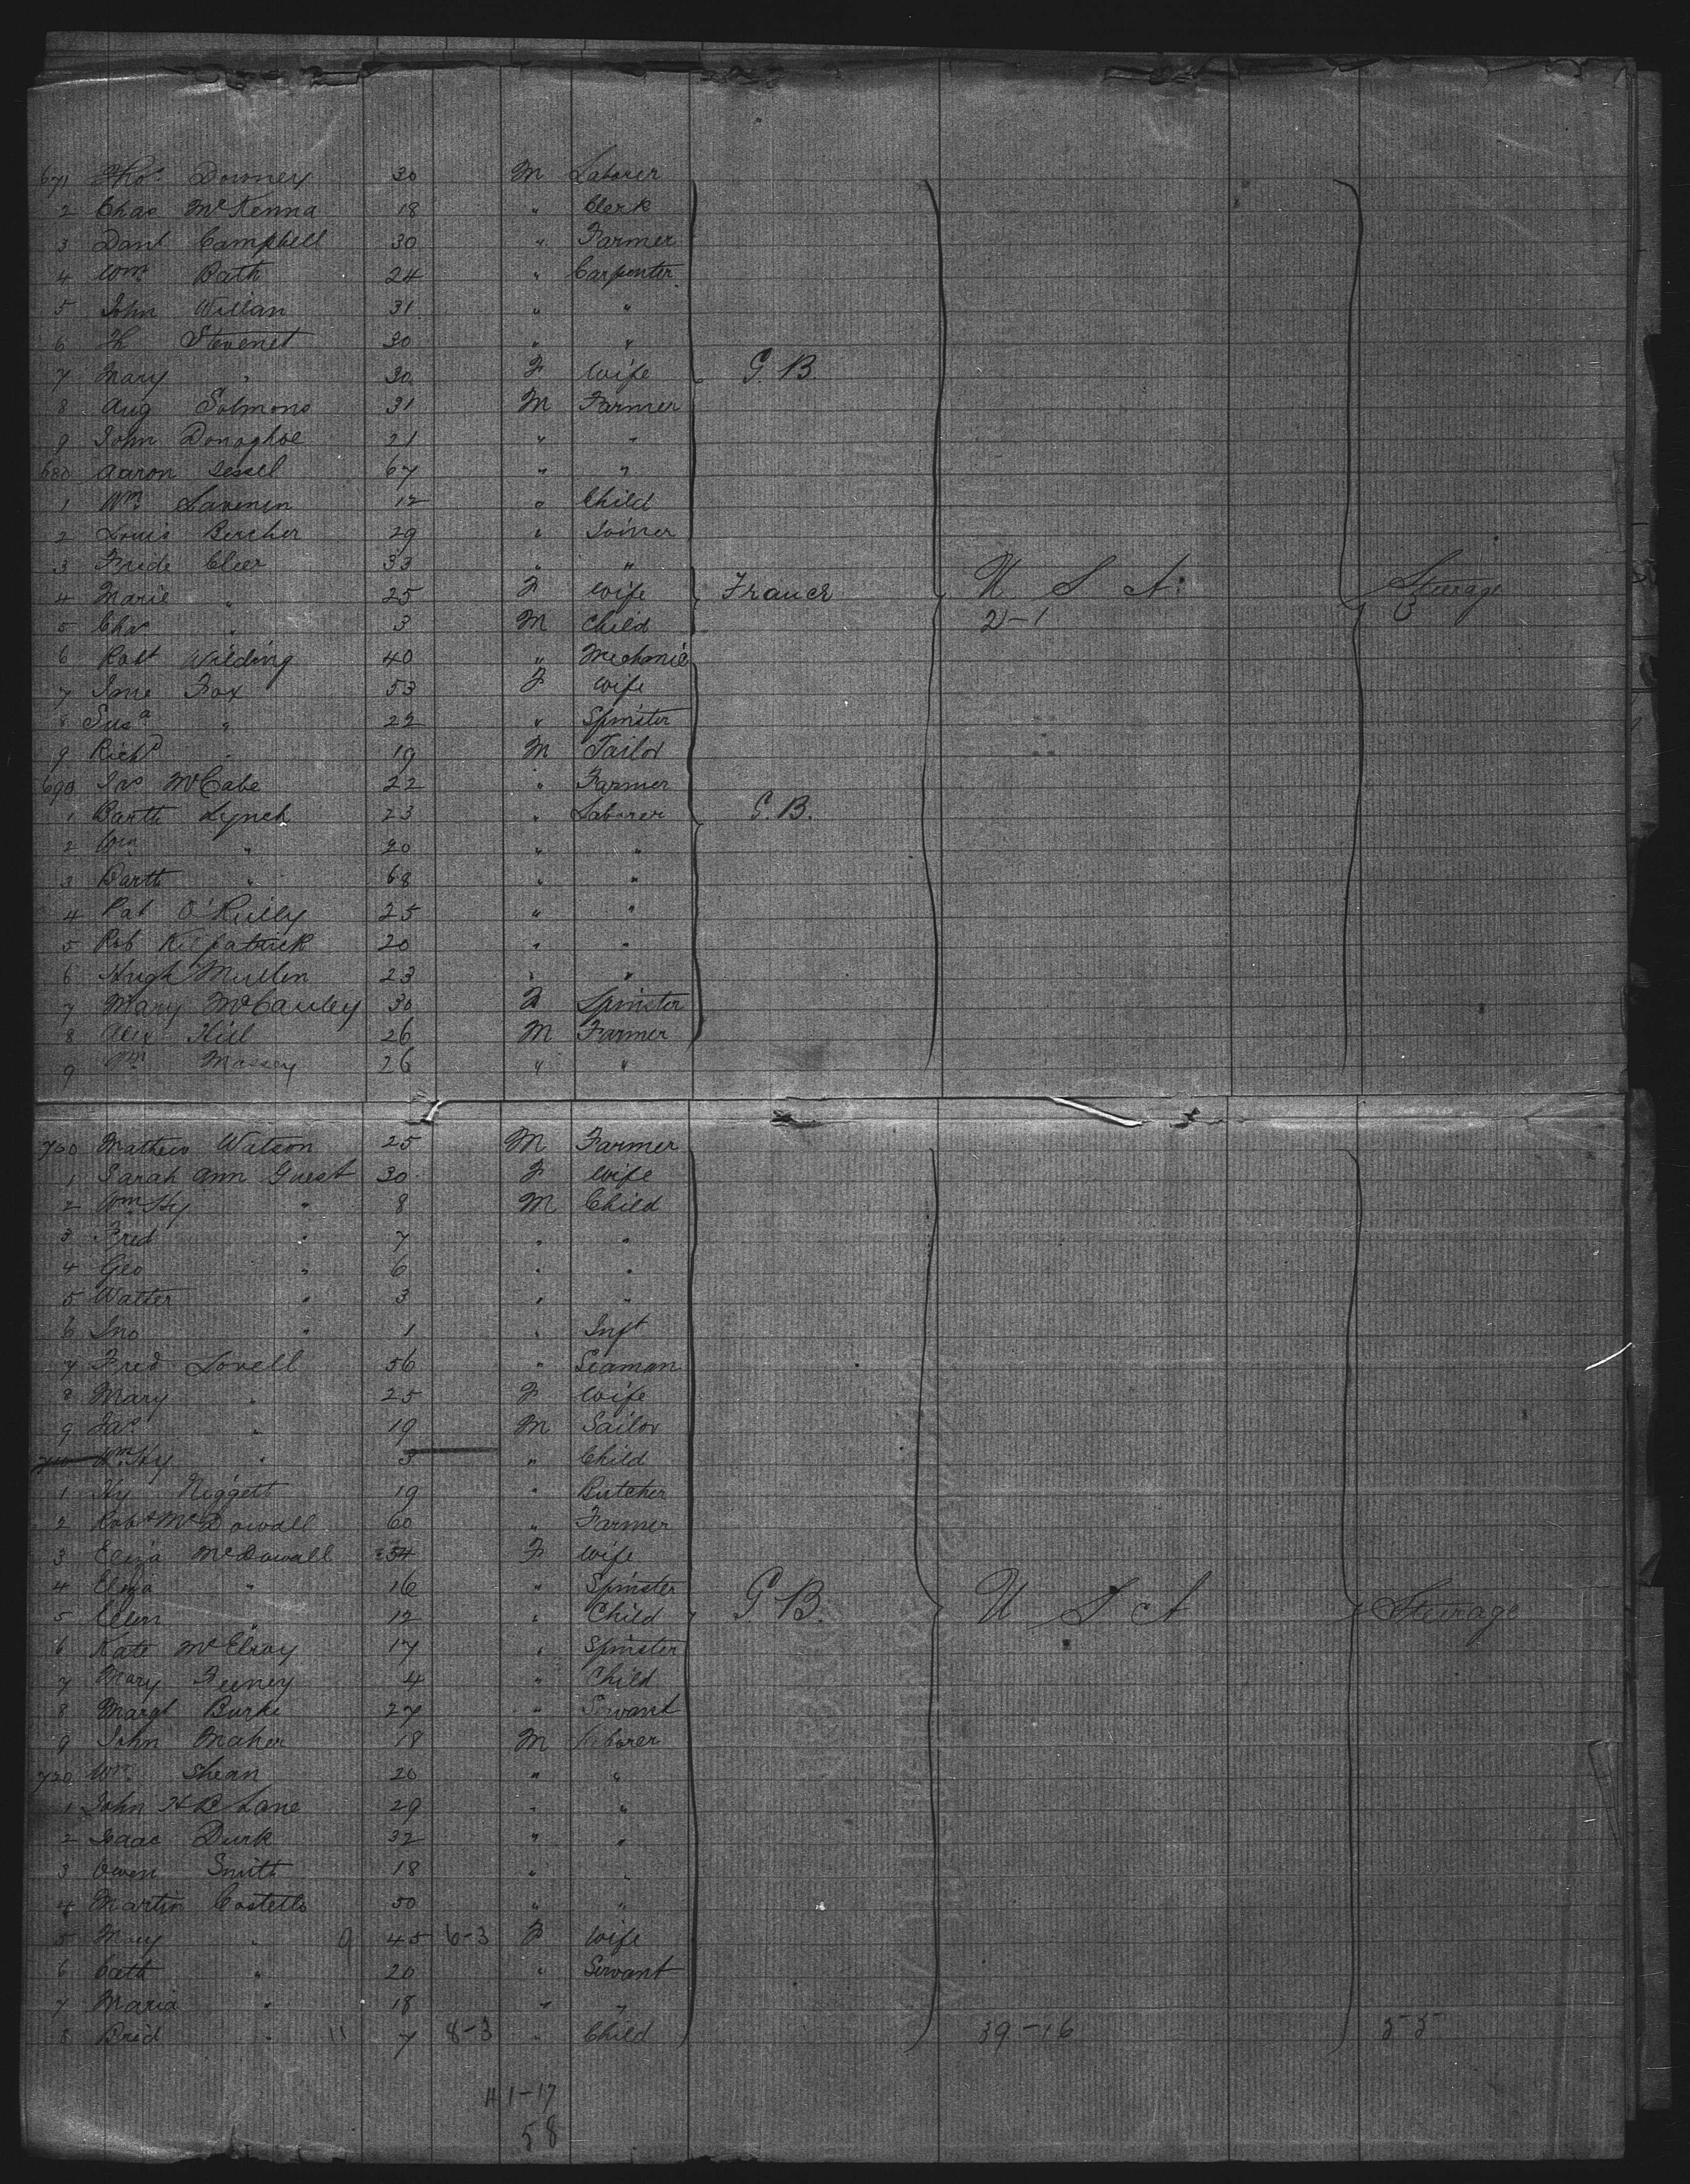 671 Thos. Downey 30 M Laborer
2 Chas McKenna 18 " Clerk
3 Danl Campbell 30 " Farmer
4 Wm Bath 24 " Carpenter
5 John Willan 31 " "
6 H Stevenet 30 " "
7 Mary " 30 F Wife G. B.
8 Aug Solmons 31 M Farmer
9 John Donoghoe 21 " "
680 Aaron Sessel 67 " "
1 Wm 12 " Child
2 Louis Bercher 29 " Joiner
3 Fride Cleer 33 " "
4 Marie " 25 F Wife France U S A. Steerage
5 Chas " 3 M Child 2-1 3
6 Robt Wilding 40 " Mechanic
7 Jane Fox 53 F Wife
8 Susa " 22 " Spinster
9 Richd " 19 M Tailor
690 Jas McCabe 22 " Farmer
1 Barth Lynch 23 " Laborer G. B.
2 Wm " 20 " "
3 Barth " 68 " "
4 Pat O'Reilly 25 " "
5 Rob Kilpatrick 20 " "
6 Hugh Mullen 23 " "
7 Mary McCauley 30 F Spinster
8 Alex Hill 26 M Farmer
9 Wm Massey 26 " "
700 Mathew Watson 25 M Farmer
1 Sarah Ann Guest 30 F Wife
2 Wm Hy " 8 M Child
3 Fred " 7 " "
4 Geo " 6 " "
5 Walter " 3 " "
6 Jno " 1 " Inft
7 Fred Lovell 56 " Seaman
8 Mary " 25 F Wife
9 Jas " 19 M Sailor
710 Wm Hy " 3 " Child
1 Hy Niggett 19 " Butcher
2 Robt McDowall 60 " Farmer
3 Eliza McDowall 54 F Wife
4 Eliza " 16 " Spinster
5 Ellen " 12 " Child G B. U S A Steerage
6 Kate McElroy 17 " Spinster
7 Mary Feeney 4 " Child
8 Margt Burke 27 " Servant
9 John Maher 18 M Laborer
720 Wm Shean 20 " "
1 John H B Lane 29 " "
2 Isaac Durk 32 " "
3 Owen Smith 18 " "
4 Martin Costello 50 " "
5 Mary " 9 45 6-3 F Wife
6 Cath " 20 " Servant
7 Maria " 18 " "
8 Brid " 11 7 8-3 " Child 39-16 55
41-17
58